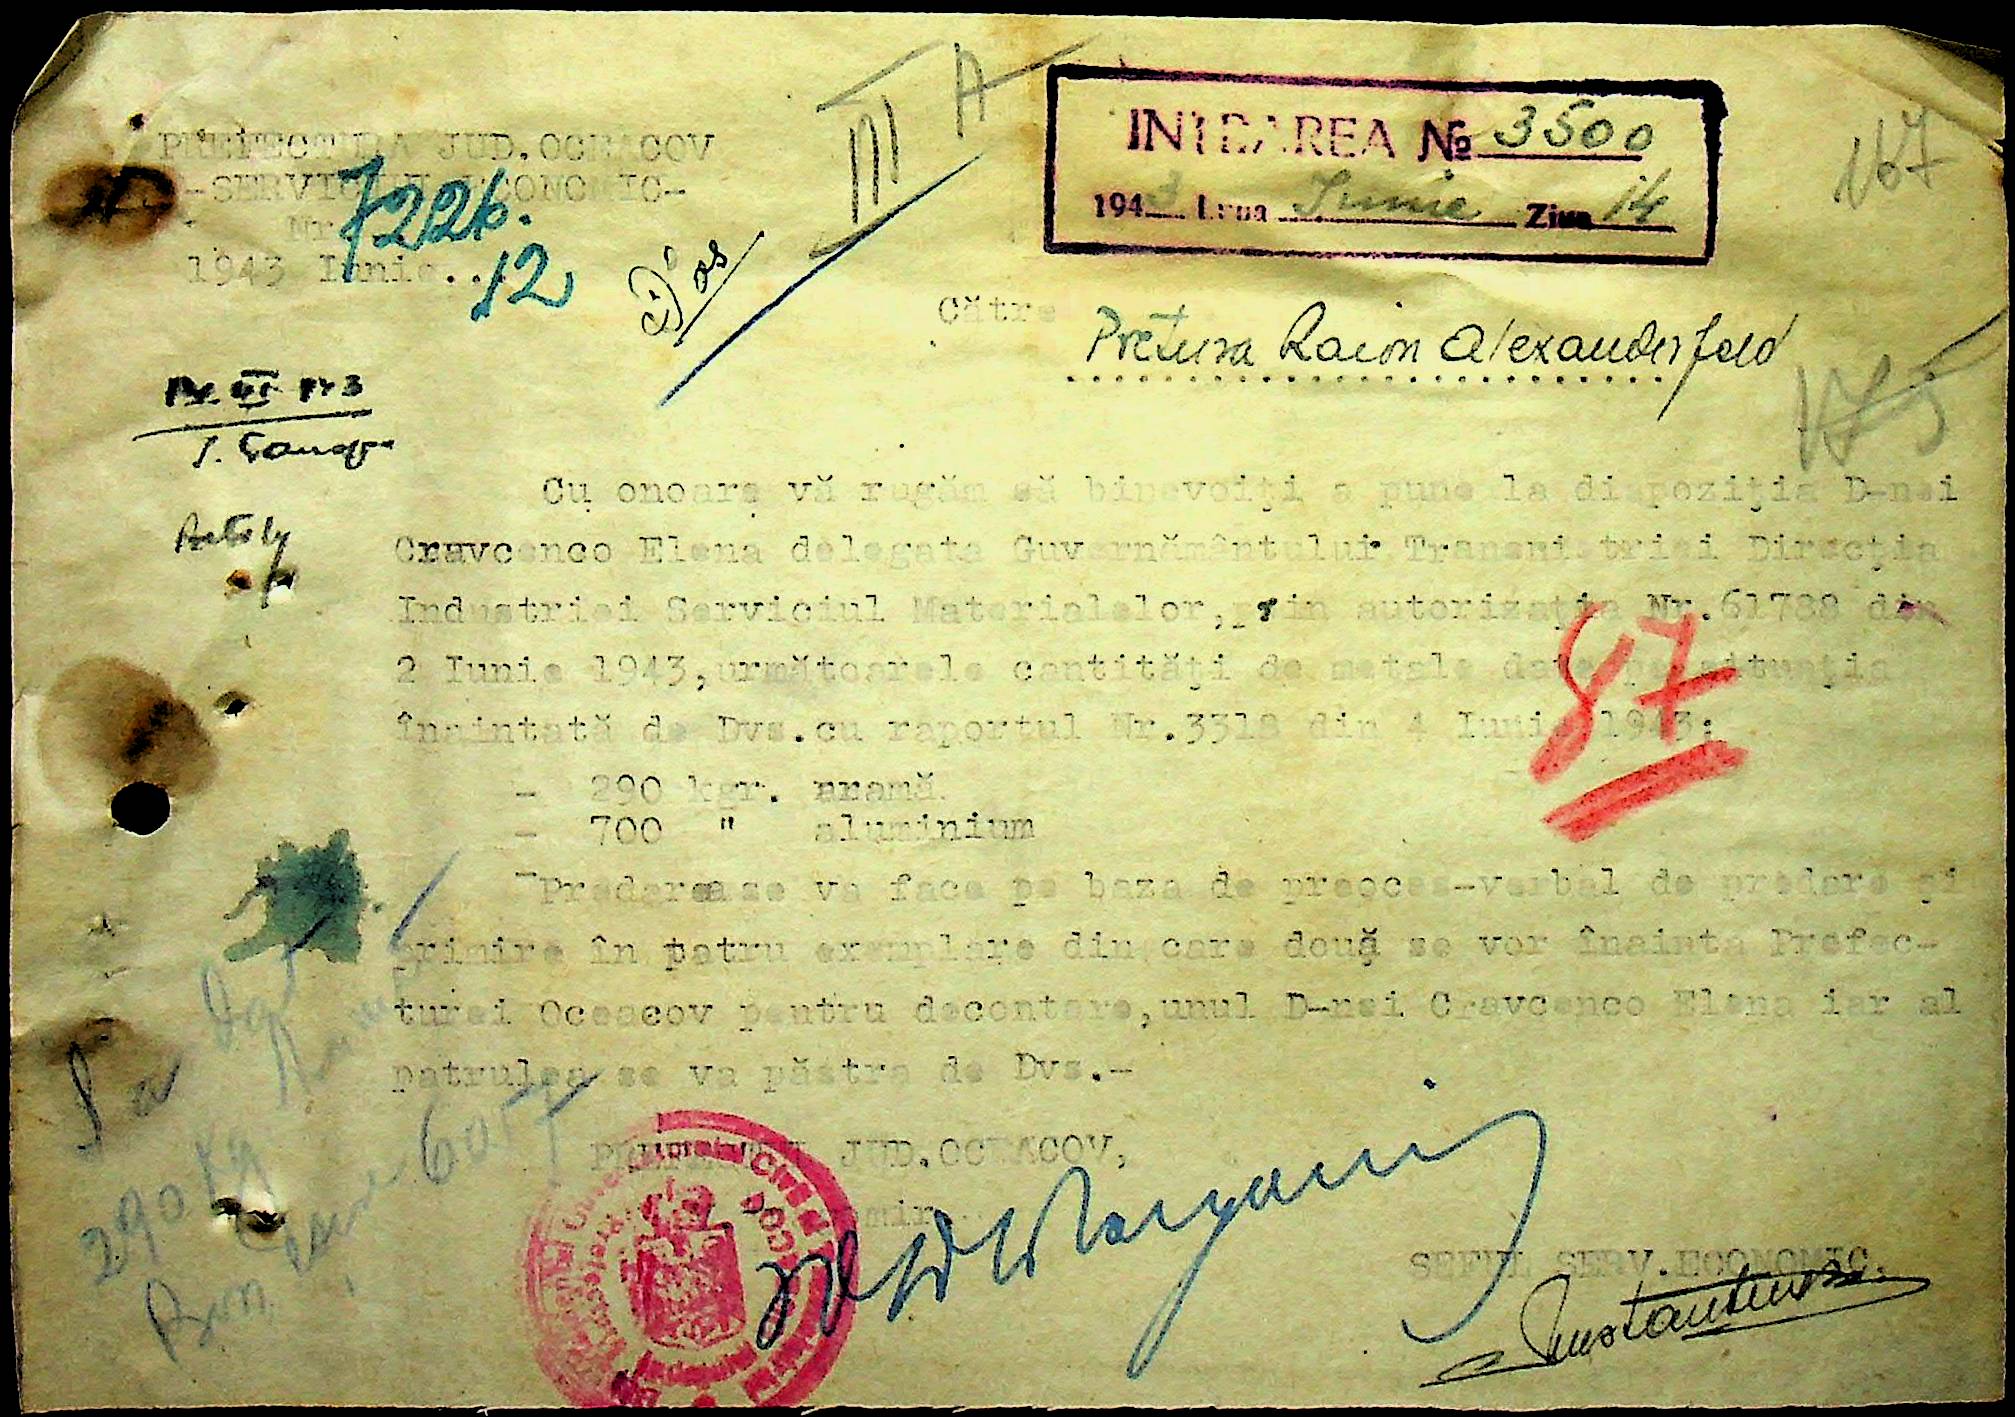 PREFECTURA JUD. OCEACOV
-SERVICIUL ECONOMIC-
Nr. 7226.
1943 Iunie... 12
III A
Dos
INTRAREA № 3500
1943 Luna Iunie Ziua 14
167
Către
Pretura Raion Alexanderfeld
175
Cu onoare vă rugăm să binevoiţi a pune la dispoziţia D-nei
Cravcenco Elena delegata Guvernământului Transnistriei Direcţia
Industriei Serviciul Materialelor, prin autorizaţia Nr.61788 din
2 Iunie 1943,următoarele cantităţi de metale date pe situaţia
înaintată de Dvs.cu raportul Nr.3318 din 4 Iunie 1943:
87
- 290 kgr. aramă
- 700 " aluminium
-Predarea se va face pe baza de preoces-verbal de predare şi
primire în patru exemplare din care două se vor înainta Prefec-
turei Oceacov pentru decontare,unul D-nei Cravcenco Elena iar al
patrulea se va păstra de Dvs.-
S a dat
290 kg
PREFECTUL JUD.OCEACOV,
SEFUL SERV.ECONOMIC.